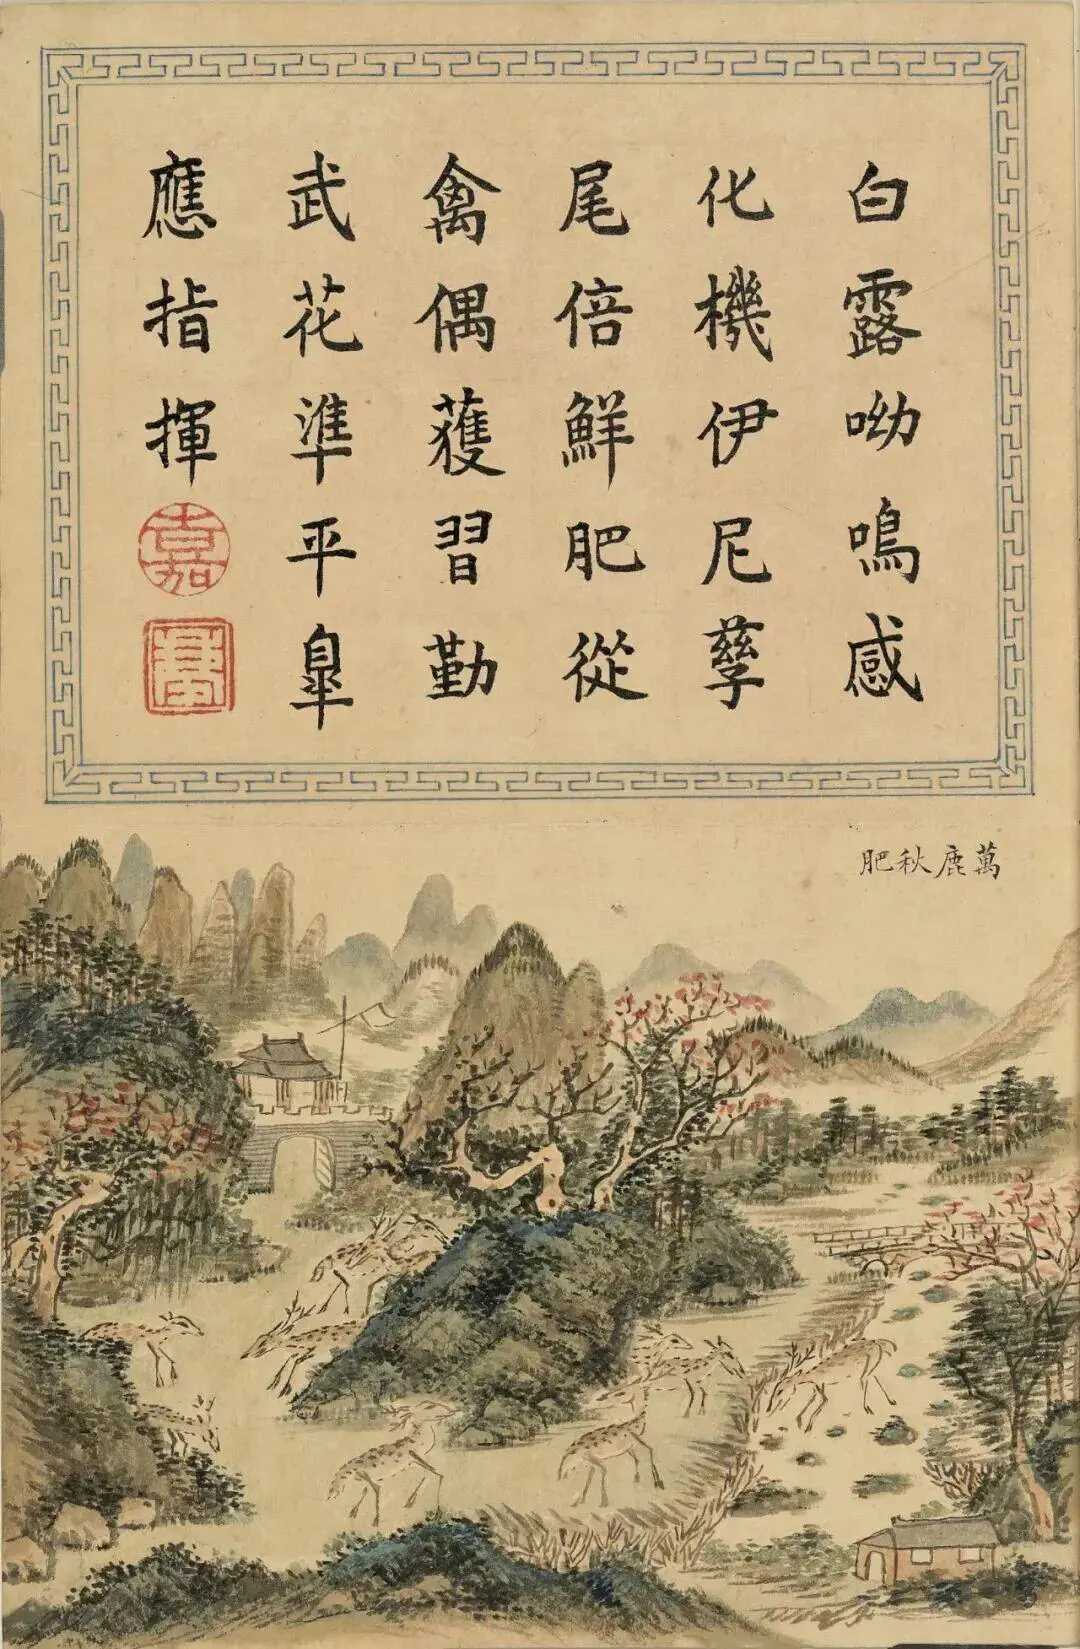 白露呦鳴感
化機伊尼孳
尾倍鮮肥從
禽偶獲習勤
武花準平臯
應指揮
嘉
萬鹿秋肥